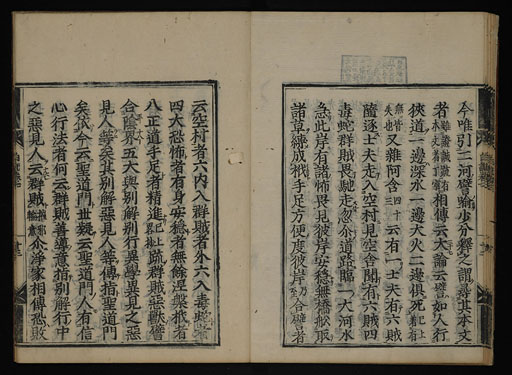 今唯引二河譬喻少分釋之謂尋其本文
者 相傳云大論云譬如人行
狹道一邊深水一邊大火二邊俱死
又雜阿含四十云有一士夫有六賊
隨逐士夫走入空村見空舍聞有六賊四
毒蛇群賊畏馳走忽尒道路臨一大河水
急此岸有諸怖畏見彼岸安穩無橋舩取
諸草縛成栰手足方便度彼岸 合譬者
云空村者六內入群賊者外六入毒蛇者
四大恐怖者有身安穩者無餘涅槃栰者
八正道手足者精進 疏群賊惡獸譬
合陰界五大與別解別行異學異見之惡
見人等矣其別解惡見人等傳指聖道門
矣依今云聖道門世疑云聖道門人有信
心行法者何云群賊善導意指別解行中
之惡見人云群賊 尒淨家相傳恐敗